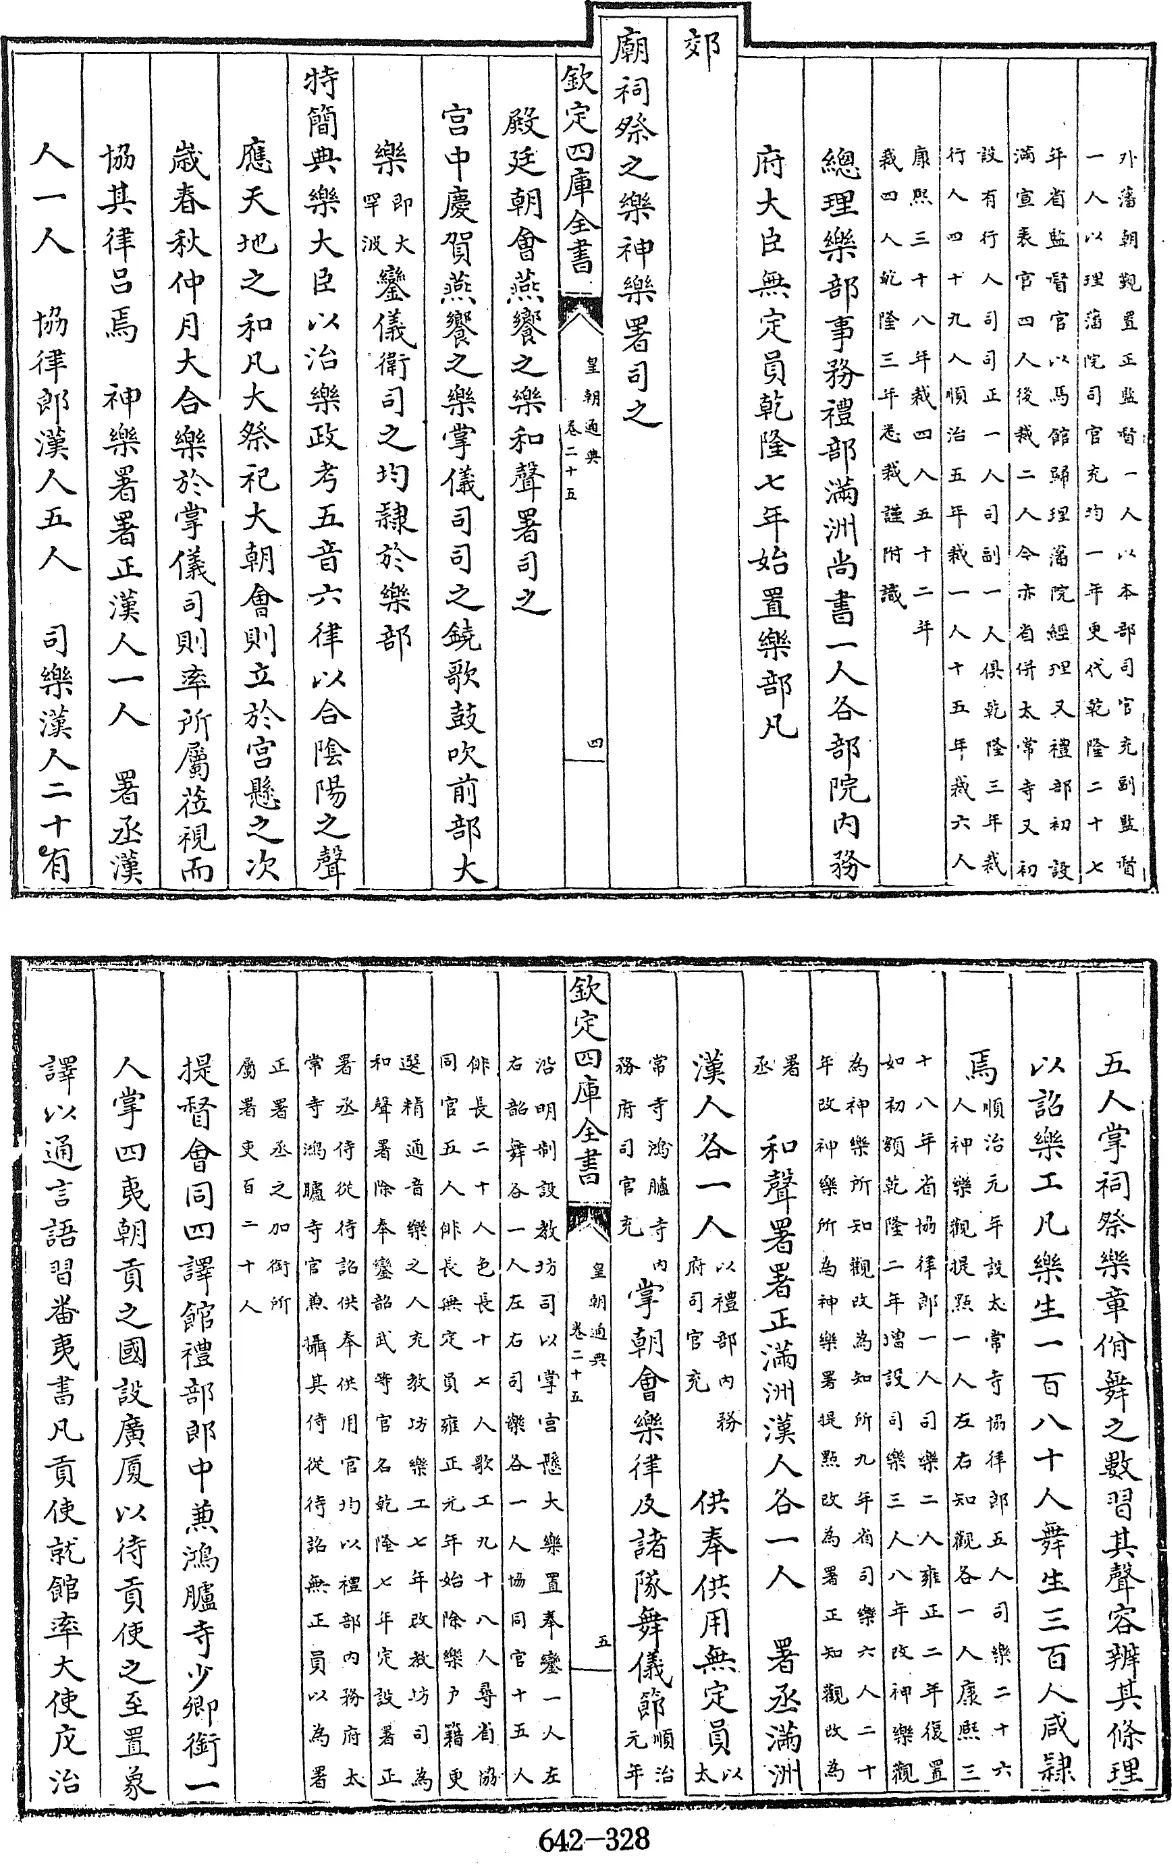 外藩朝覲置正監督一人以本部司官充副監督
一人以理藩院司官充均一年更代乾隆二十七
年省監督官以馬館歸理藩院經理又禮部初設
滿宣表官四人後裁二人今亦省併太常寺又初
設有行人司司正一人司副一人俱乾隆三年裁
行人四十九人順治五年裁一人十五年裁六人
康熙三十八年裁四人五十二年
裁四人乾隆三年悉裁謹附識
總理樂部事務禮部滿洲尚書一人各部院内務
府大臣無定員乾隆七年始置樂部凡
郊
廟祠祭之樂神樂署司之
欽定四庫全書 皇朝通典 卷二十五 四
殿廷朝會燕饗之樂和聲署司之
宫中慶賀燕饗之樂掌儀司司之鐃歌鼓吹前部大
樂即大罕波鑾儀衛司之均隸於樂部
特簡典樂大臣以治樂政考五音六律以合陰陽之聲
應天地之和凡大祭祀大朝會則立於宫懸之次
歲春秋仲月大合樂於掌儀司則率所屬蒞視而
協其律吕焉 神樂署署正漢人一人 署丞漢
人一人 協律郎漢人五人 司樂漢人二十有
五人掌祠祭樂章佾舞之數習其聲容辨其條理
以詔樂工凡樂生一百八十人舞生三百人咸隸
焉順治元年設太常寺協律郎五人司樂二十六
人神樂觀提點一人左右知觀各一人康熙三
十八年省協律郎一人司樂二人雍正二年復置
如初額乾隆二年增設司樂三人八年改神樂觀
為神樂所知觀改為知所九年省司樂六人二十
年改神樂所為神樂署提點改為署正知觀改為
署丞 和聲署署正滿洲漢人各一人 署丞滿洲
漢人各一人以禮部内務府司官充 供奉供用無定員以太
常寺鴻臚寺内務府司官充掌朝會樂律及諸隊舞儀節順治元年
欽定四庫全書 皇朝通典 卷二十五 五
沿明制設教坊司以掌宫懸大樂置奉鑾一人左
右韶舞各一人左右司樂各一人協同官十五人
俳長二十人色長十七人歌工九十八人尋省協
同官五人俳長無定員雍正元年始除樂户籍更
選精通音樂之人充教坊樂工七年改教坊司為
和聲署除奉鑾韶武等官名乾隆七年定設署正
署丞侍從待詔供奉供用官均以禮部内務府太
常寺鴻臚寺官兼攝其侍從待詔無正員以為署
正署丞之加銜所
屬署吏百二十人
提督會同四譯館禮部郎中兼鴻臚寺少卿銜一
人掌四夷朝貢之國設廣厦以待貢使之至置象
譯以通言語習番夷書凡貢使就館率大使庀治
642-328